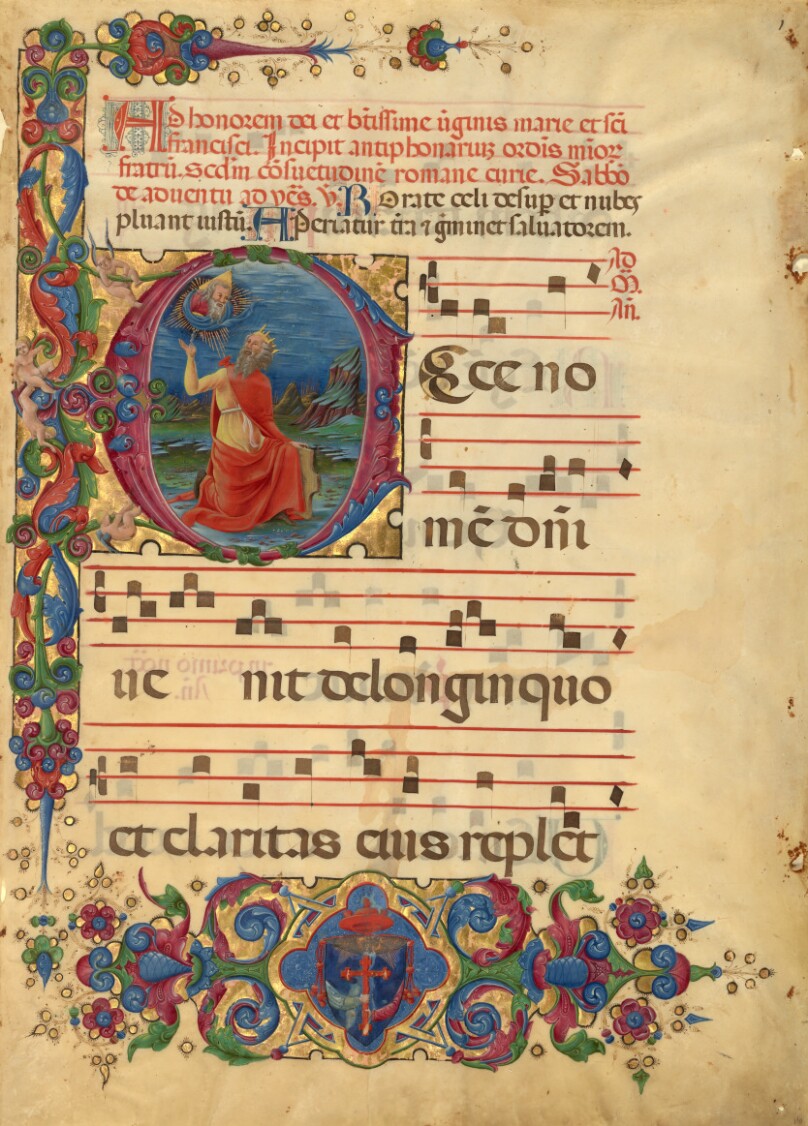 1
Ad honorem dei et btissime uginis marie et sci
francisci. Incipit antiphonariuz ordis mior
fratrū. Scdm cōsuetudinē romane curie. Sabbo
de aduentu ad ves. V. Rorate celi desup et nubes
pluant iustū. Aperiatur tra ⁊ gminet saluatorem.
Ad
M.
An.
Ecce no
mē dñi
ue nit de longin quo
et claritas eius replet